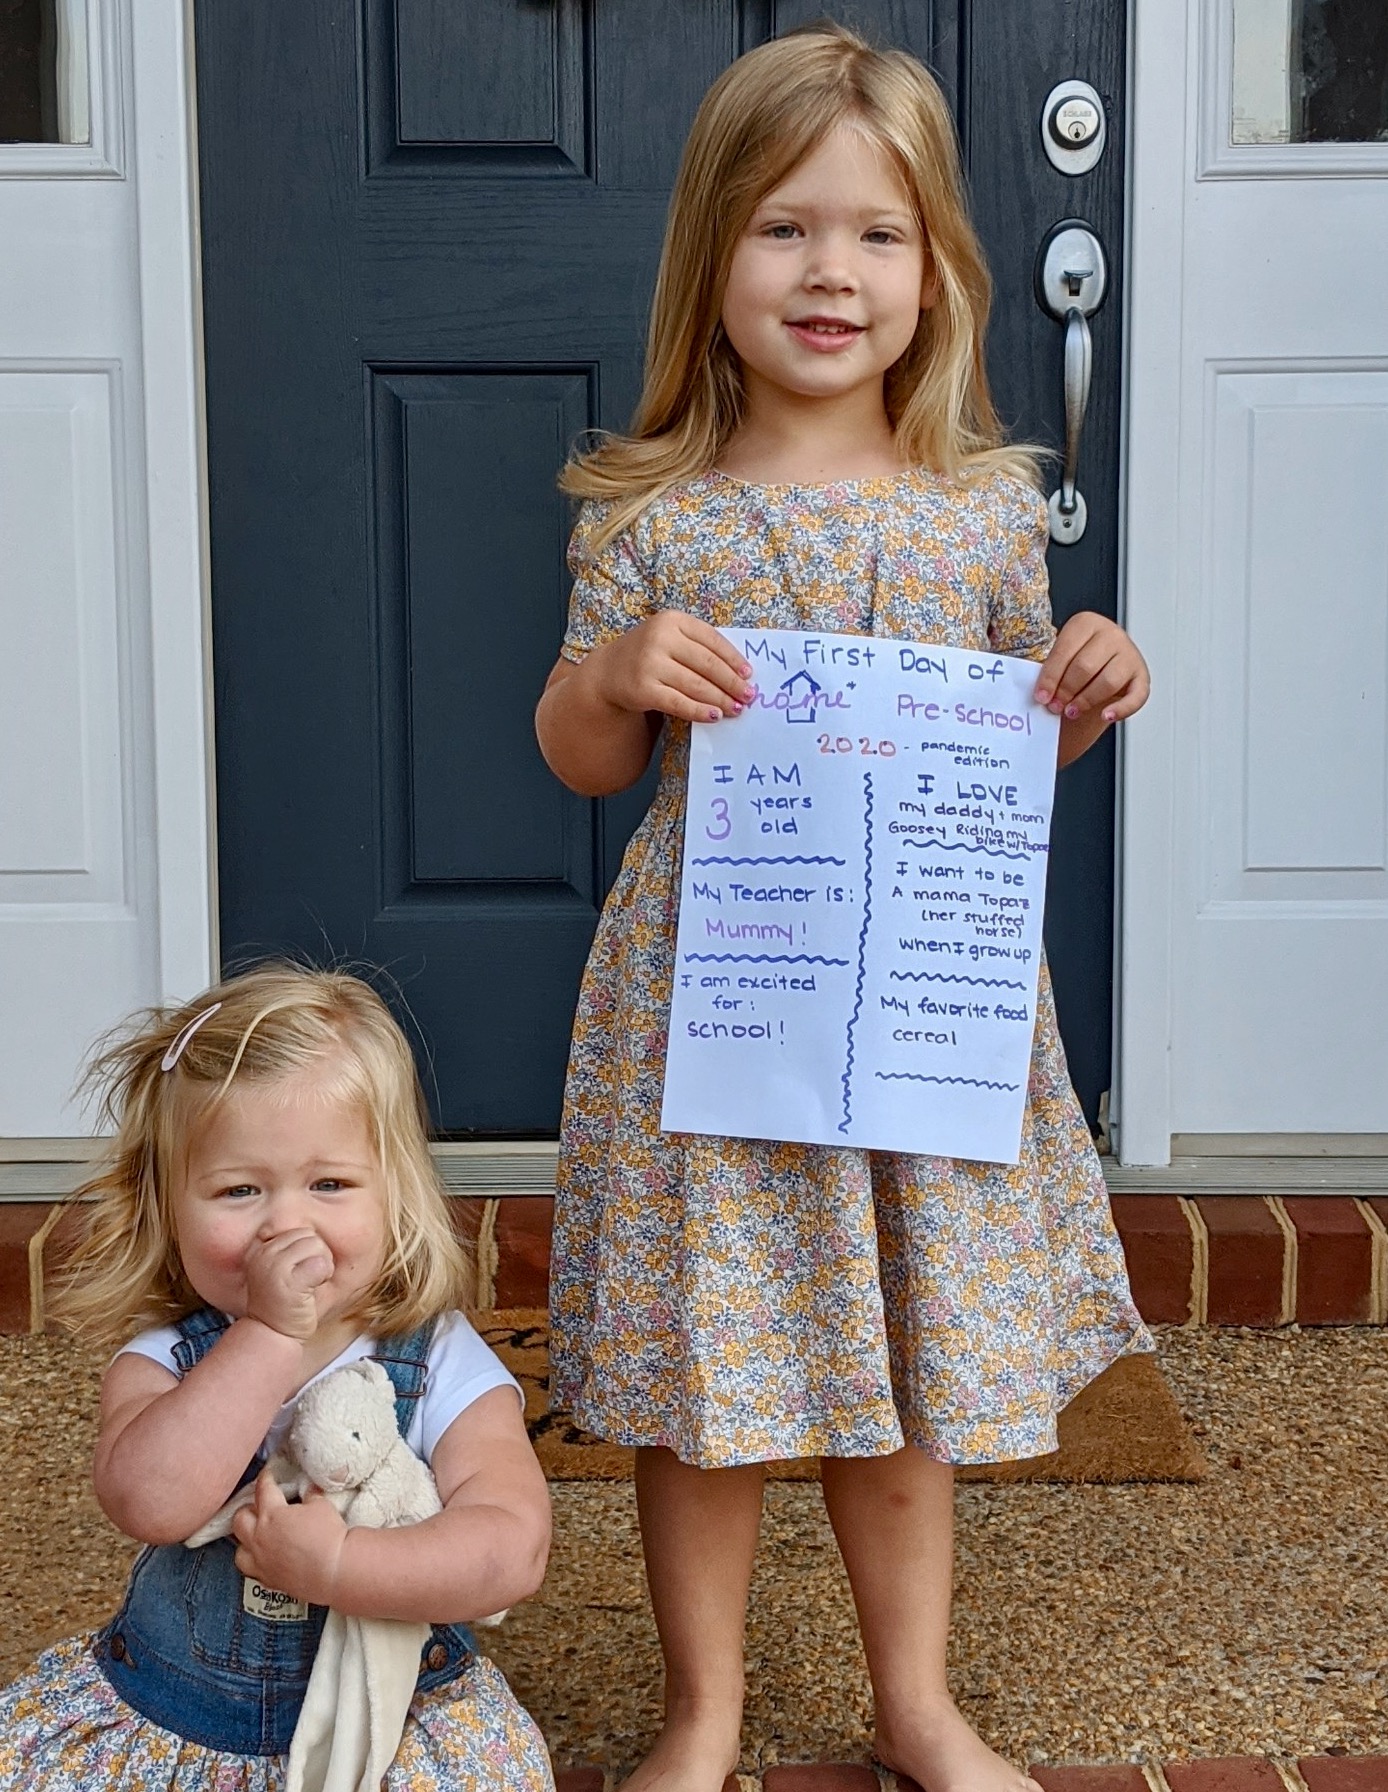 My First Day of
home* Pre-school
2020 - pandemic
edition
I AM
3 years
old
My Teacher is:
Mummy!
I am excited
for:
school!
I LOVE
my daddy + mom
Goosey Riding my
bike w/Topaz
I want to be
A mama Topaz
(her stuffed
horse)
when I grow up
My favorite food
cereal
SCHLAGE
OSHKOSH
B'gosh